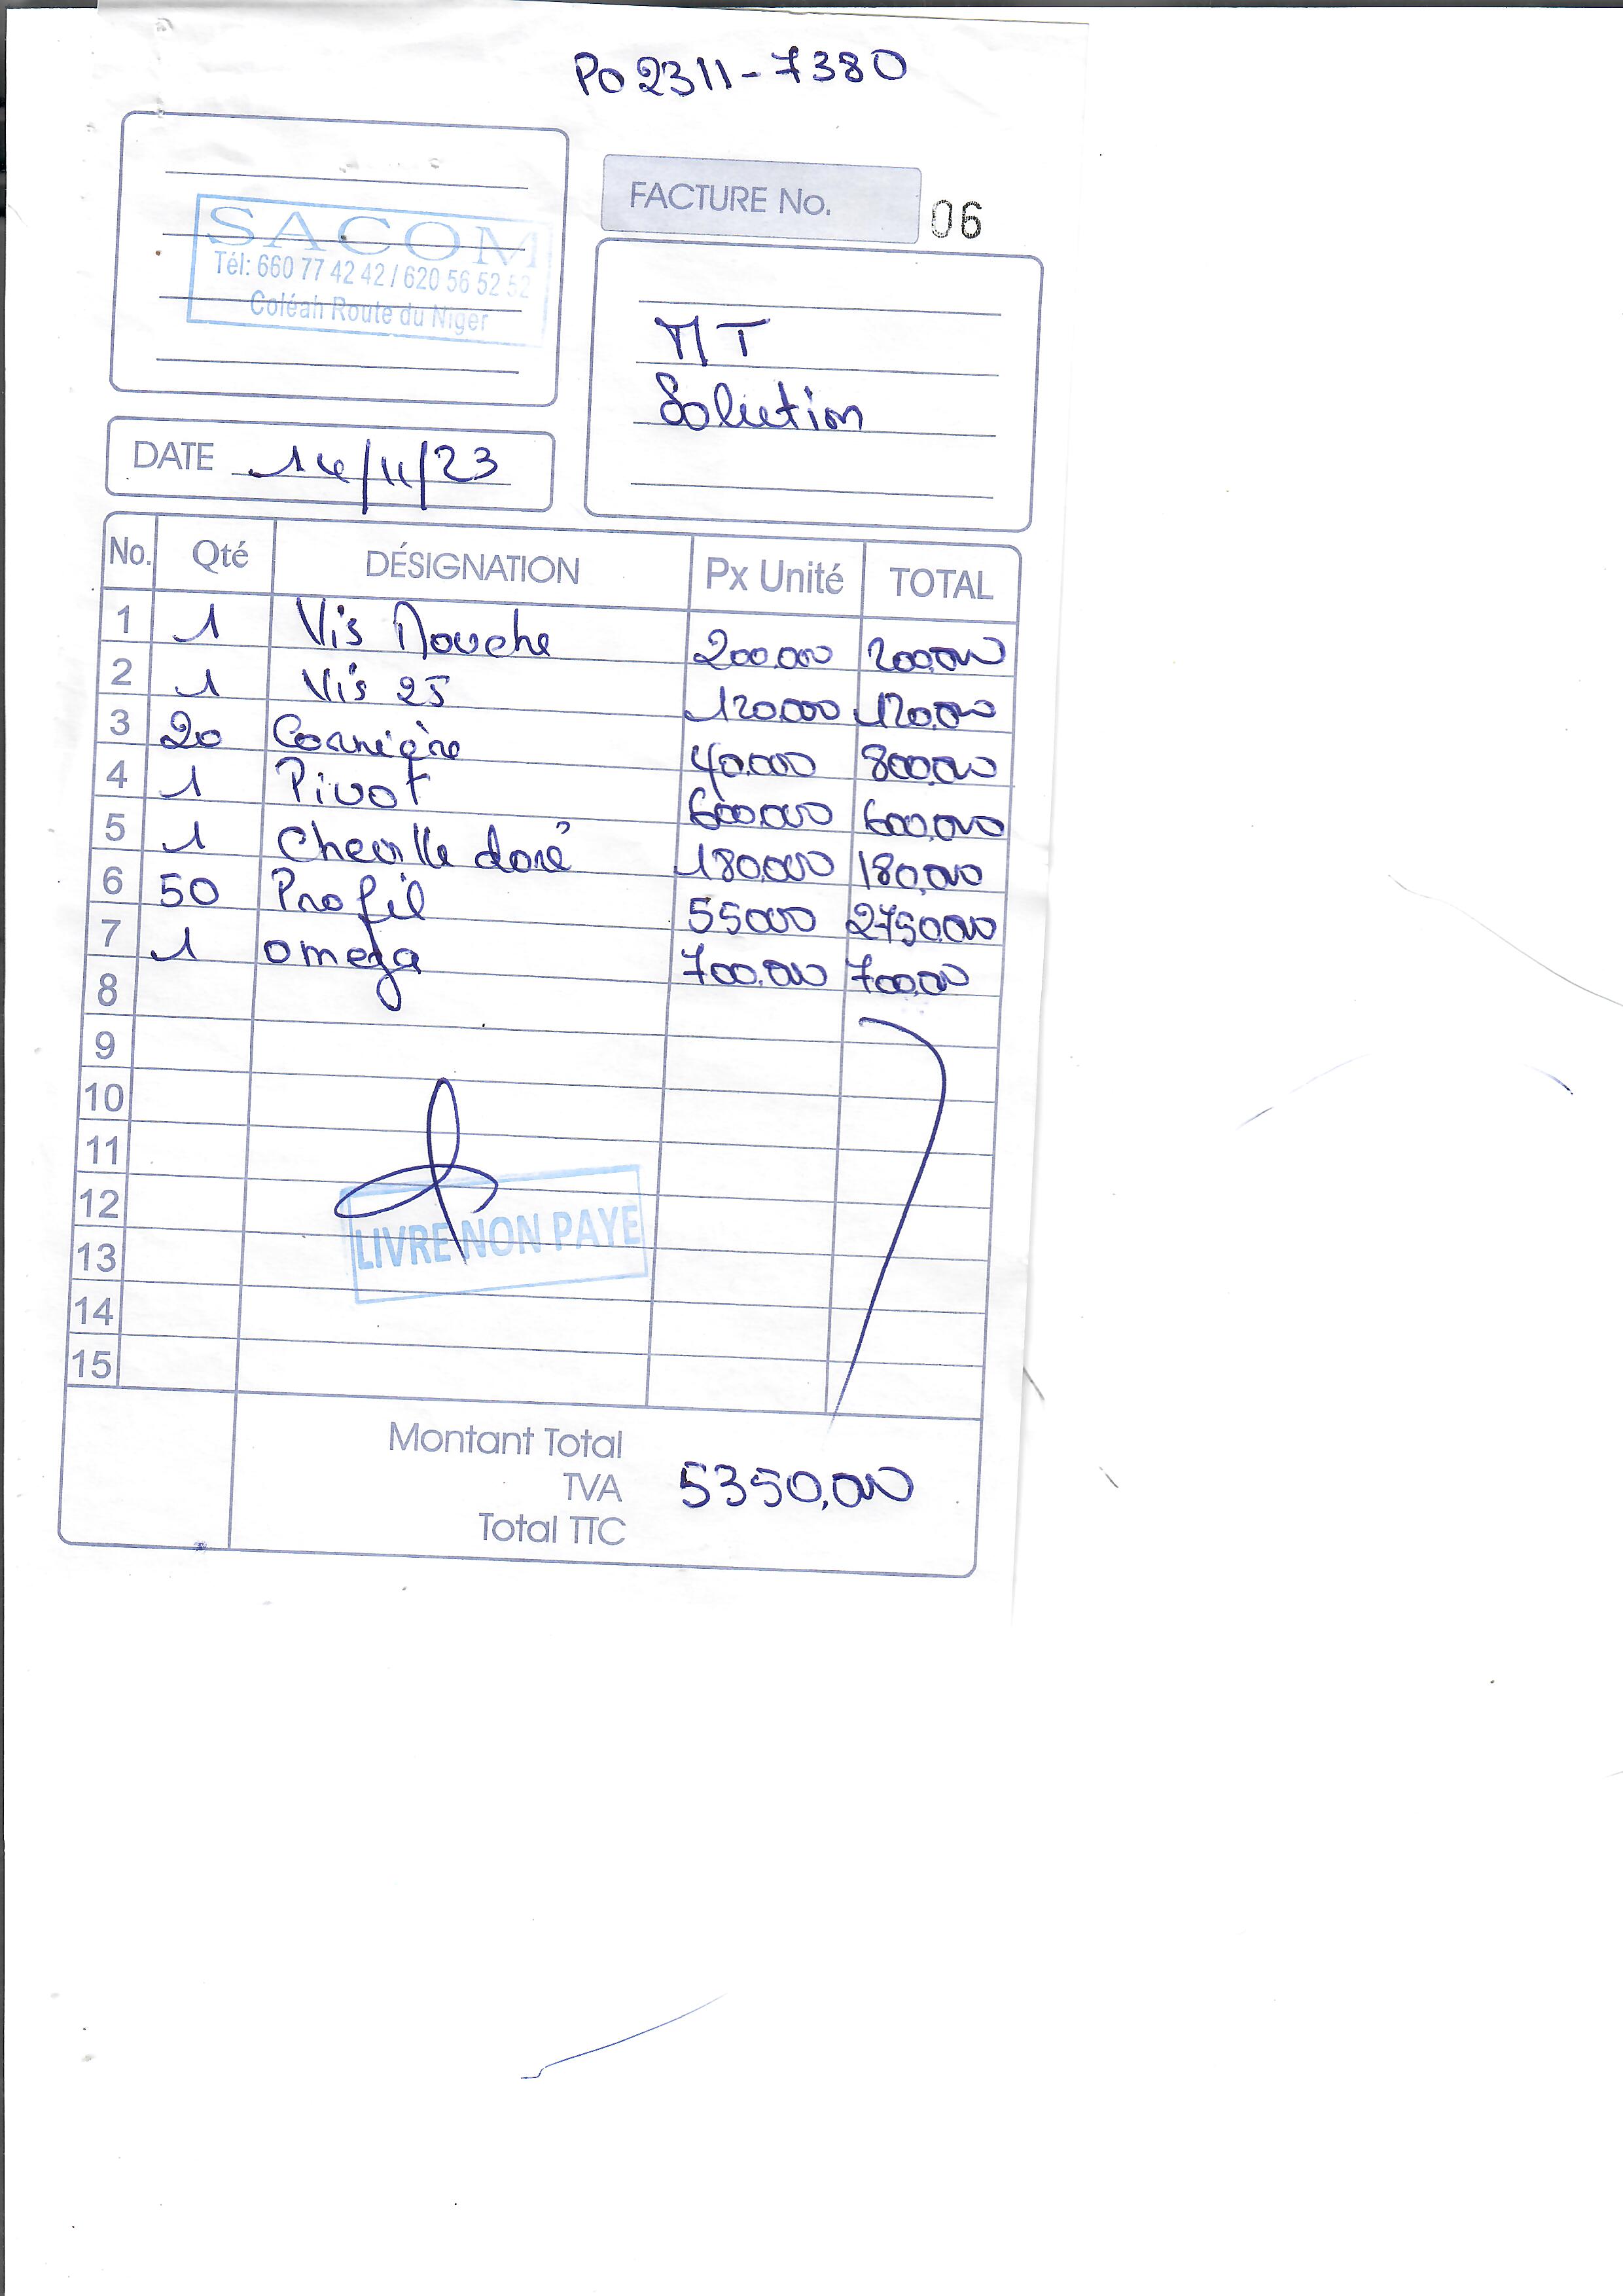 Po 2311-7380
SACOM
Tél: 660 77 42 42 / 620 56 52 52
Coléah Route du Niger
FACTURE No. 06
MT
Solution
DATE 14/11/23
No. Qté DÉSIGNATION Px Unité TOTAL
1 1 Vis Mouche 200.000 200.000
2 1 Vis 25 120.000 120.000
3 20 Cornière 40.000 800.000
4 1 Pivot 600.000 600.000
5 1 Cheville doré 180.000 180.000
6 50 Profil 55000 2750.000
7 1 omega 700.000 700.000
8
9
10
11
12
LIVRE NON PAYE
13
14
15
Montant Total
TVA 5350,000
Total TTC